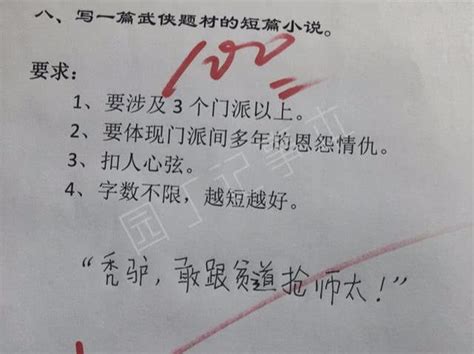 八、写一篇武侠题材的短篇小说。
100
要求：
1、要涉及 3 个门派以上。
2、要体现门派间多年的恩怨情仇。
3、扣人心弦。
4、字数不限，越短越好。
园丁记事本
“秃驴，敢跟贫道抢师太！”